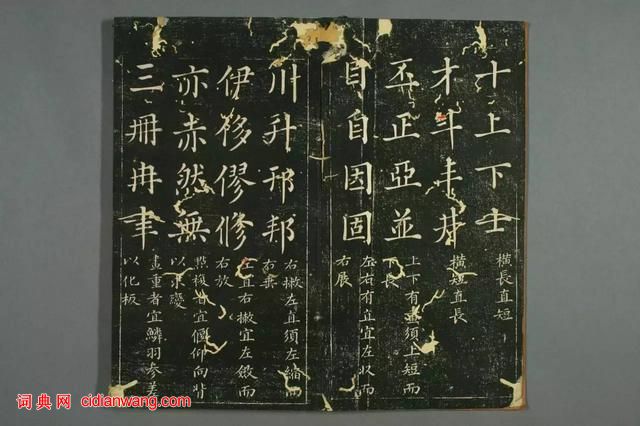 十上下士 橫長直短
才斗丰井 橫短直長
丕正亞並 上下有畫須上短而下長
目自因固 左右有直宜左收而右展
川升邗邦 右撇左直須左縮而右垂
伊移僇修 左直右撇宜左斂而右放
亦赤然無 點複者宜偃仰向背以求變
三冊冉聿 畫重者宜鱗羽參差以化板
词典网 cidianwang.com